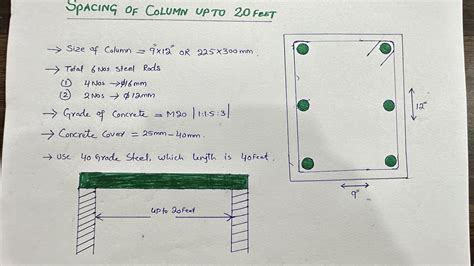 SPACING OF COLUMN UPTO 20 FEET
→ Size of Column = 9"x12" OR 225x300mm.
→ Total 6 Nos Steel Rods
① 4 Nos → ϕ16mm
② 2 Nos → ϕ12mm
→ Grade of Concrete = M20 |1:1.5:3|
→ Concrete Cover = 25mm-40mm.
→ Use 40 Grade Steel, which length is 40 Feet.
12"
9"
upto 20 Feet